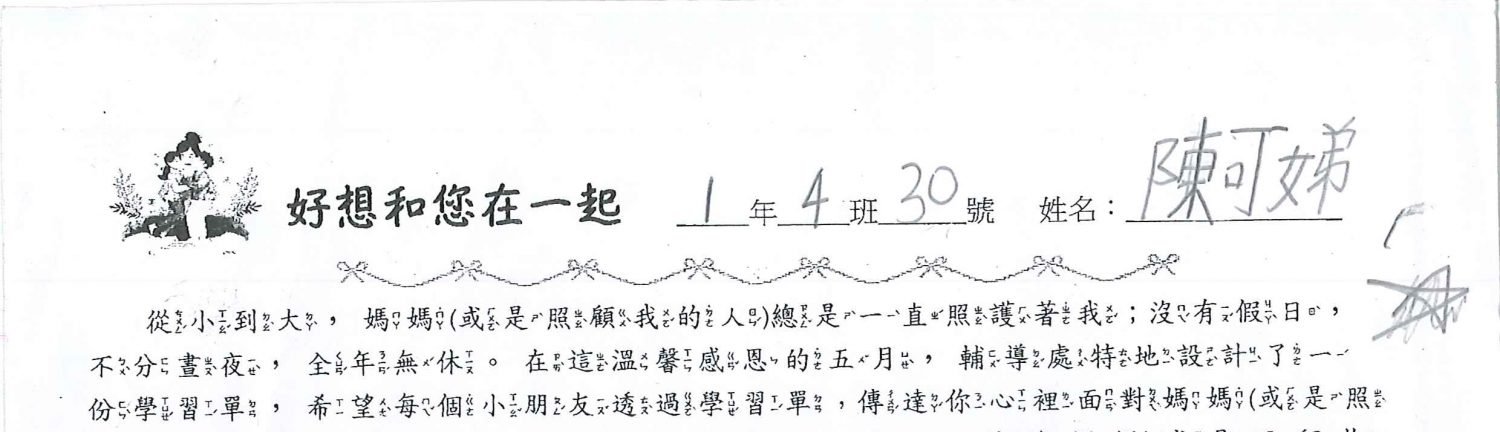 好想和您在一起 1年4班30號 姓名：陳可娣
從小到大，媽媽(或是照顧我的人)總是一直照護著我；沒有假日，
不分晝夜，全年無休。在這溫馨感恩的五月，輔導處特地設計了一
份學習單，希望每個小朋友透過學習單，傳達你心裡面對媽媽(或是照